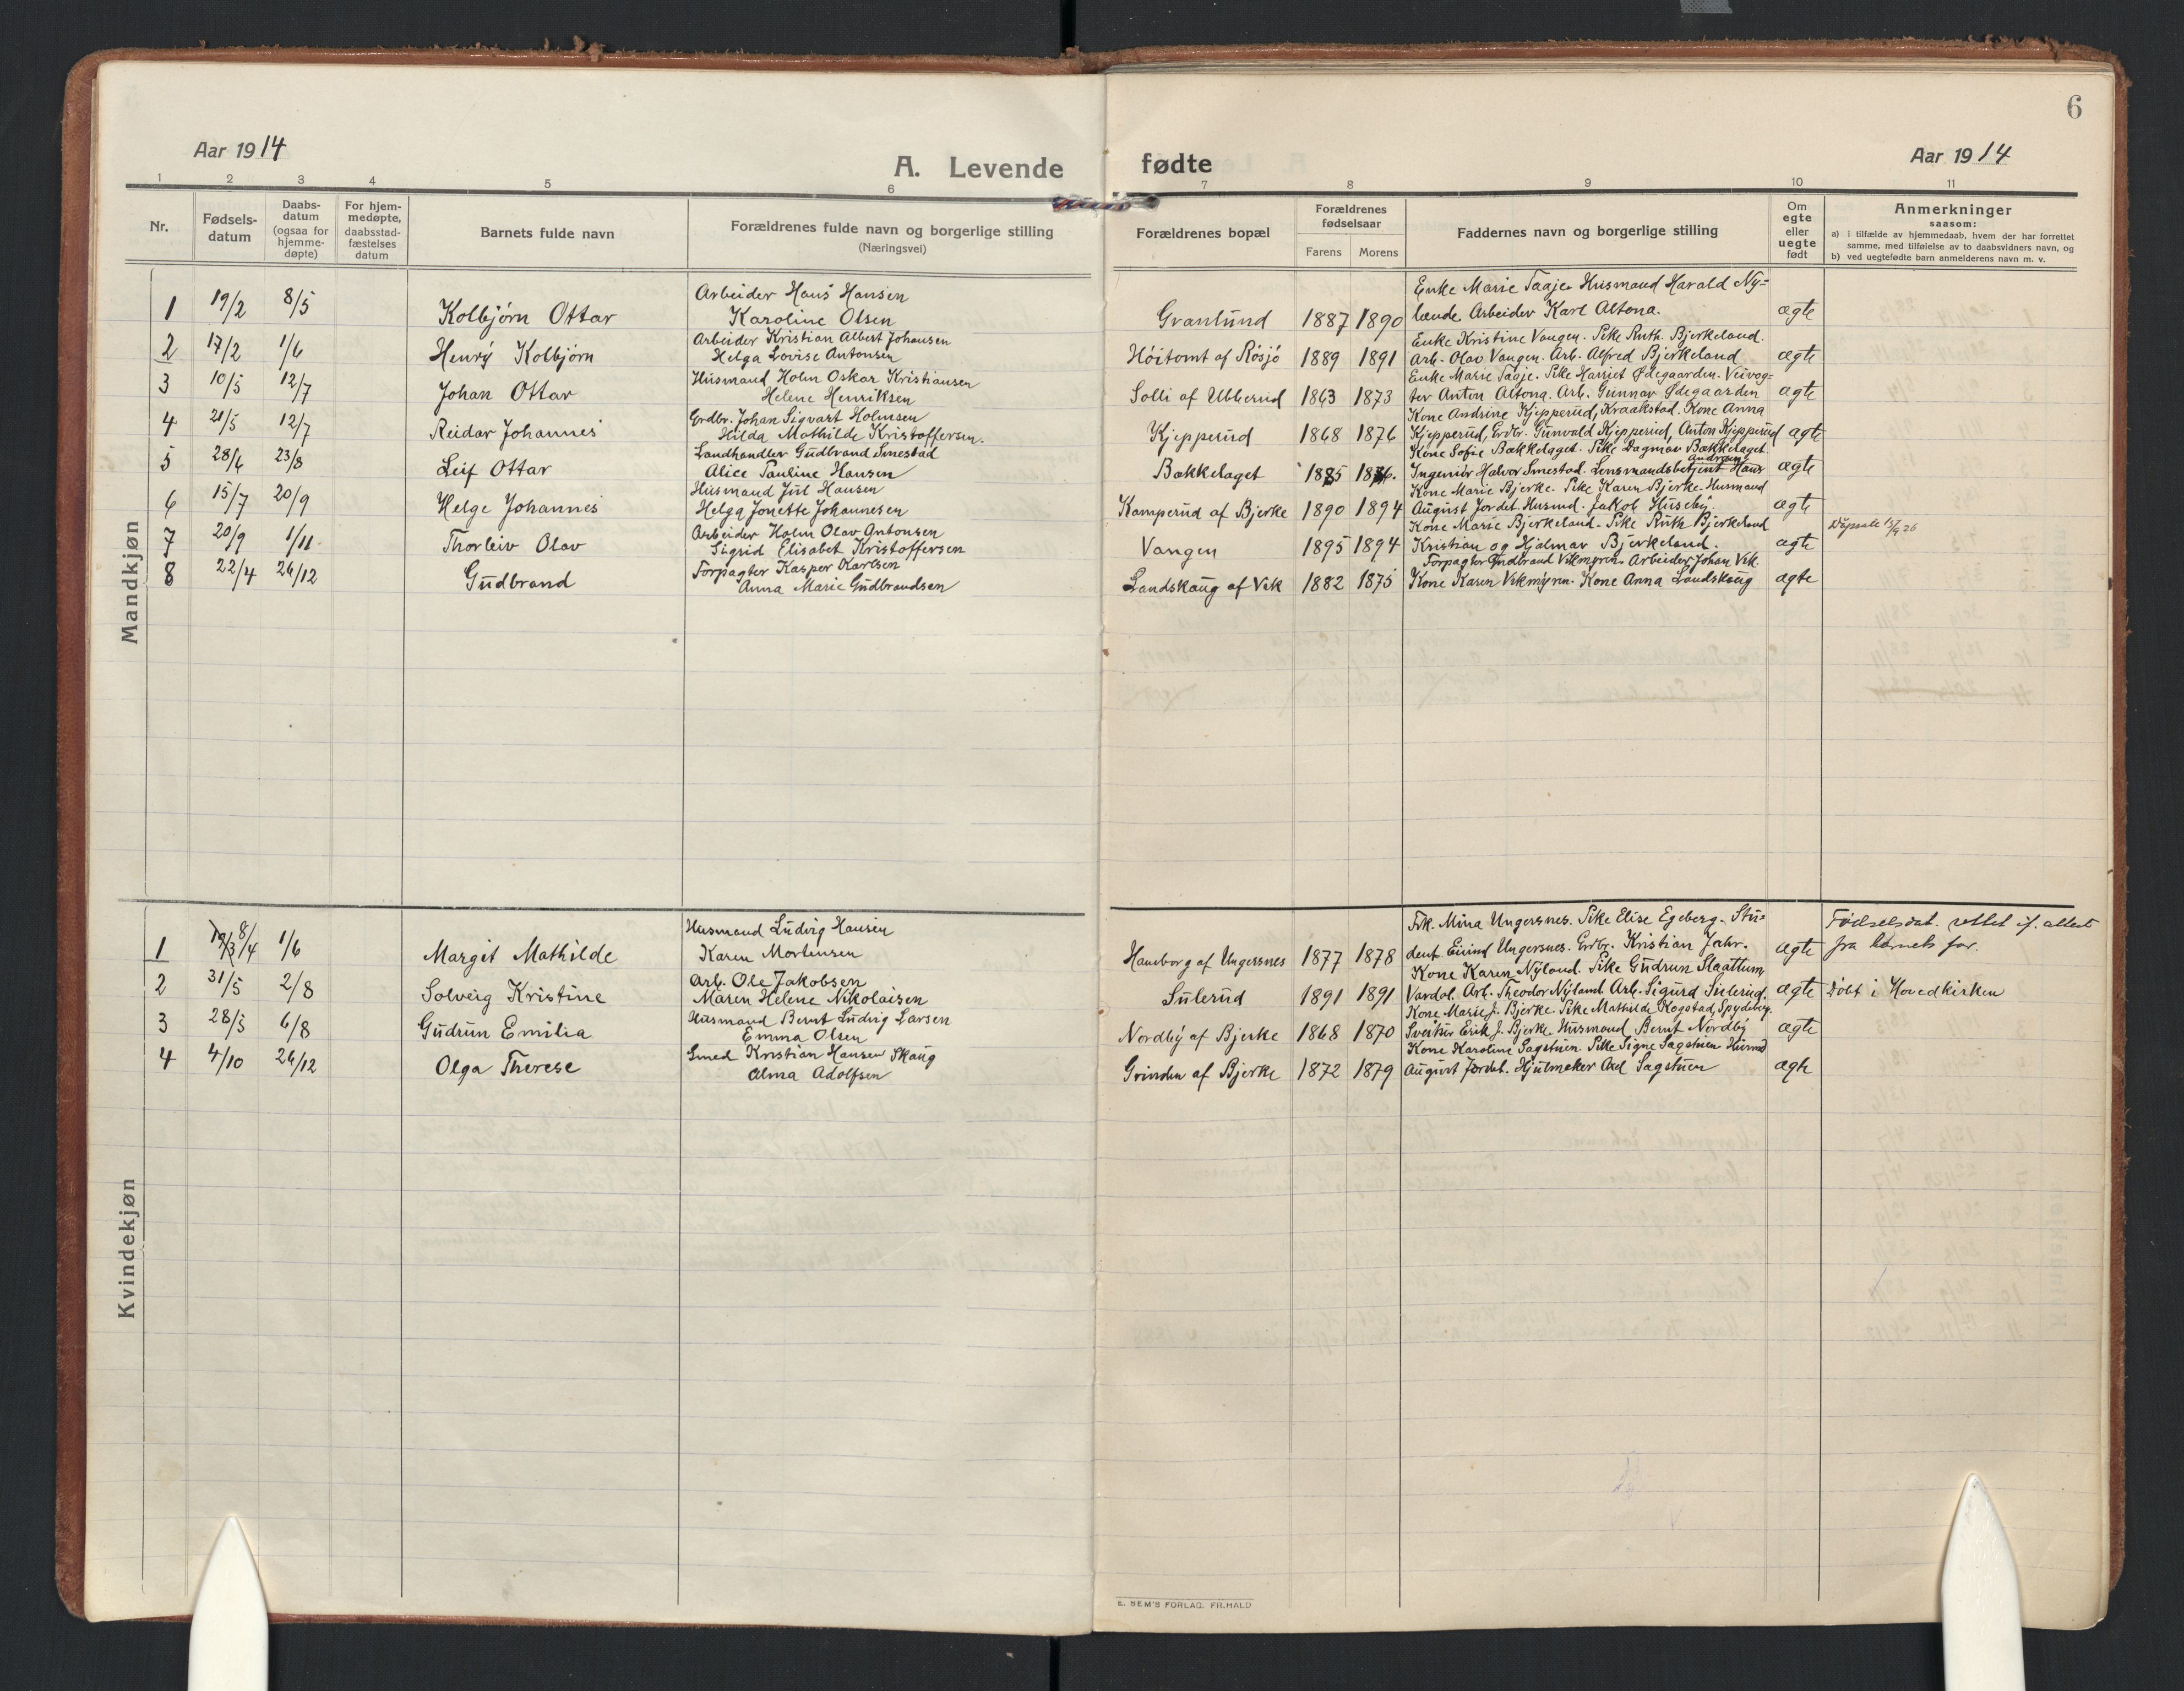 6
Aar 1914
A. Levende
fødte
Aar 1914
1 2 3 4 5 6 7 8 9 10 11
Nr.
Fødsels-
datum
Daabs-
datum
(ogsaa for
hjemme-
døpte)
For hjem-
medøpte,
daabsstad-
fæstelses
datum
Barnets fulde navn
Forældrenes fulde navn og borgerlige stilling
(Næringsvei)
Forældrenes bopæl
Forældrenes
fødselsaar
Farens Morens
Faddernes navn og borgerlige stilling
Om
egte
eller
uegte
født
Anmerkninger
saasom:
a) i tilfælde av hjemmedaab, hvem der har forrettet
samme, med tilføielse av to daabsvidners navn, og
b) ved uegtefødte barn anmelderens navn m. v.
Mandkjøn
Arbeider Hans Hansen Enke Marie Taaje. Husmand Harald Ny=
1 19/2 8/5 Kolbjörn Ottar Karoline Olsen Granlund 1887 1890 lænde Arbeider Karl Altona. ægte
Arbeider Kristian Albert Johansen Enke Kristine Vangen. Pike Ruth Bjerkeland.
2 17/2 1/6 Henry Kolbjörn Helga Lovise Antonsen Höitomt af Rösjö 1889 1891 Arb. Olav Vangen. Arb. Alfred Bjerkeland ægte
Husmand Holm Oskar Kristiansen Enke Marie Taaje. Pike Harriet Ødegaarden. Veivog=
3 10/5 12/7 Johan Ottar Helene Henriksen Solli af Ubberud 1863 1873 ter Anton Altona. Arb. Gunnar Ødegaarden ægte
Grdbr. Johan Sigvart Holmsen Kone Andrine Kjepperud, Kraakstad. Kone Anna
4 21/5 12/7 Reidar Johannes Hilda Mathilde Kristoffersen. Kjepperud 1868 1876 Kjepperud, Grdbr. Gunvald Kjepperud, Anton Kjepperud ægte
Landhandler Gudbrand Smestad Kone Sofie Bækkelaget. Pike Dagmar Bækkelaget.
5 28/6 23/8 Leif Ottar Alice Pauline Hansen Bækkelaget Ingeniör Halvor Smestad. Lensmandsbetjent Hans Andresen ægte
Husmand Jul Hansen Kone Marie Bjerke. Pike Karen Bjerke. Husmand
6 15/7 20/9 Helge Johannes Helga Jonette Johannesen Kamperud af Bjerke 1890 1894 August Jordet. Husmd. Jakob Huseby. ægte
Arbeider Holm Olav Antonsen Kone Marie Bjerkeland. Pike Ruth Bjerkeland
7 20/9 1/11 Thorleiv Olav Sigrid Elisabet Kristoffersen Vangen 1895 1894 Kristian og Hjalmar Bjerkeland. ægte
Forpagter Kasper Karlsen Forpagter Gudbrand Vikmyren. Arbeider Johan Vik.
8 22/4 26/12 Gudbrand Anna Marie Gudbrandsen Landskaug af Vik 1882 1875 Kone Karen Vikmyren. Kone Anna Landskaug ægte
Kvindekjøn
Husmand Ludvig Hansen Frk. Mina Ungersnes. Pike Elise Egeberg. Stu= Fødselsdat. rettet if. attest
1 19/3 8/4 1/6 Margit Mathilde Karen Mortensen Hansborg af Ungersnes 1877 1878 dent Eivind Ungersnes. Grdbr. Kristian Jahr. ægte fra barnets far.
Arb. Ole Jakobsen Kone Karen Nyland. Pike Gudrun Slaattum,
2 31/5 2/8 Solveig Kristine Maren Helene Nikolaisen Sulerud 1891 1891 Vardol. Arb. Theodor Nyland. Arb. Sigurd Sulerud. ægte Döbt i Hovedkirken
Husmand Bernt Ludvig Larsen Kone Marie J. Bjerke. Pike Mathilde Kogstad, Spydeberg.
3 28/5 6/8 Gudrun Emilia Emma Olsen Nordby af Bjerke 1868 1870 Erik J. Bjerke. Husmand Bernt Nordby ægte
Smed Kristian Hansen Skaug Kone Karoline Sagstuen. Pike Signe Sagstuen Husmd
4 4/10 26/12 Olga Therese Alma Adolfsen Grinden af Bjerke 1872 1879 August Jordet. Hjulmaker Axel Sagstuen ægte
E. SEM'S FORLAG. FR.HALD